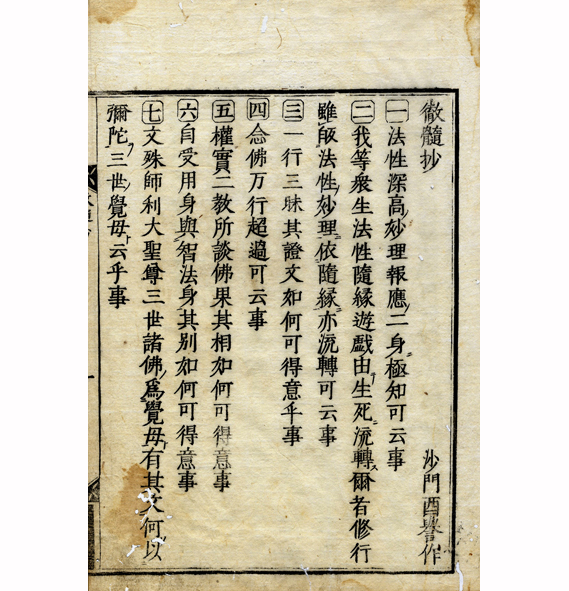 徹髓抄 沙門酉譽作
一 法性深高妙理報應二身極知可云事
二 我等衆生法性隨緣遊戲由生死流轉爾者修行
雖皈法性妙理依隨緣亦流轉可云事
三 一行三昧其證文如何可得意乎事
四 念佛万行超過可云事
五 權實二教所談佛果其相如何可得意事
六 自受用身與智法身其別如何可得意事
七 文殊師利大聖尊三世諸佛爲覺母有其文何以
彌陀三世覺母云乎事